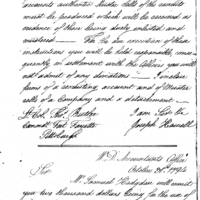 accounts authentic. Muster Rolls of the recruits
must be produced which will be received as
evidence of their being duly enlisted and
For the due execution of these
instructions you will be held responsible, conse
quently in settlement with the Officers you will
not admit of any deviations — I enclose
forms of a recruiting account and of Muster
rolls of a Company and a detachment —
I am Sir &c
Lt. Col. Tho. Butler
Command. Fort Fayette
Joseph Howell
Pittsburgh
W.D. Accountants Office
October 28th 1794
Sir
Mr. Samuel Hodgdon will remit
you two thousand dollars being for the use of